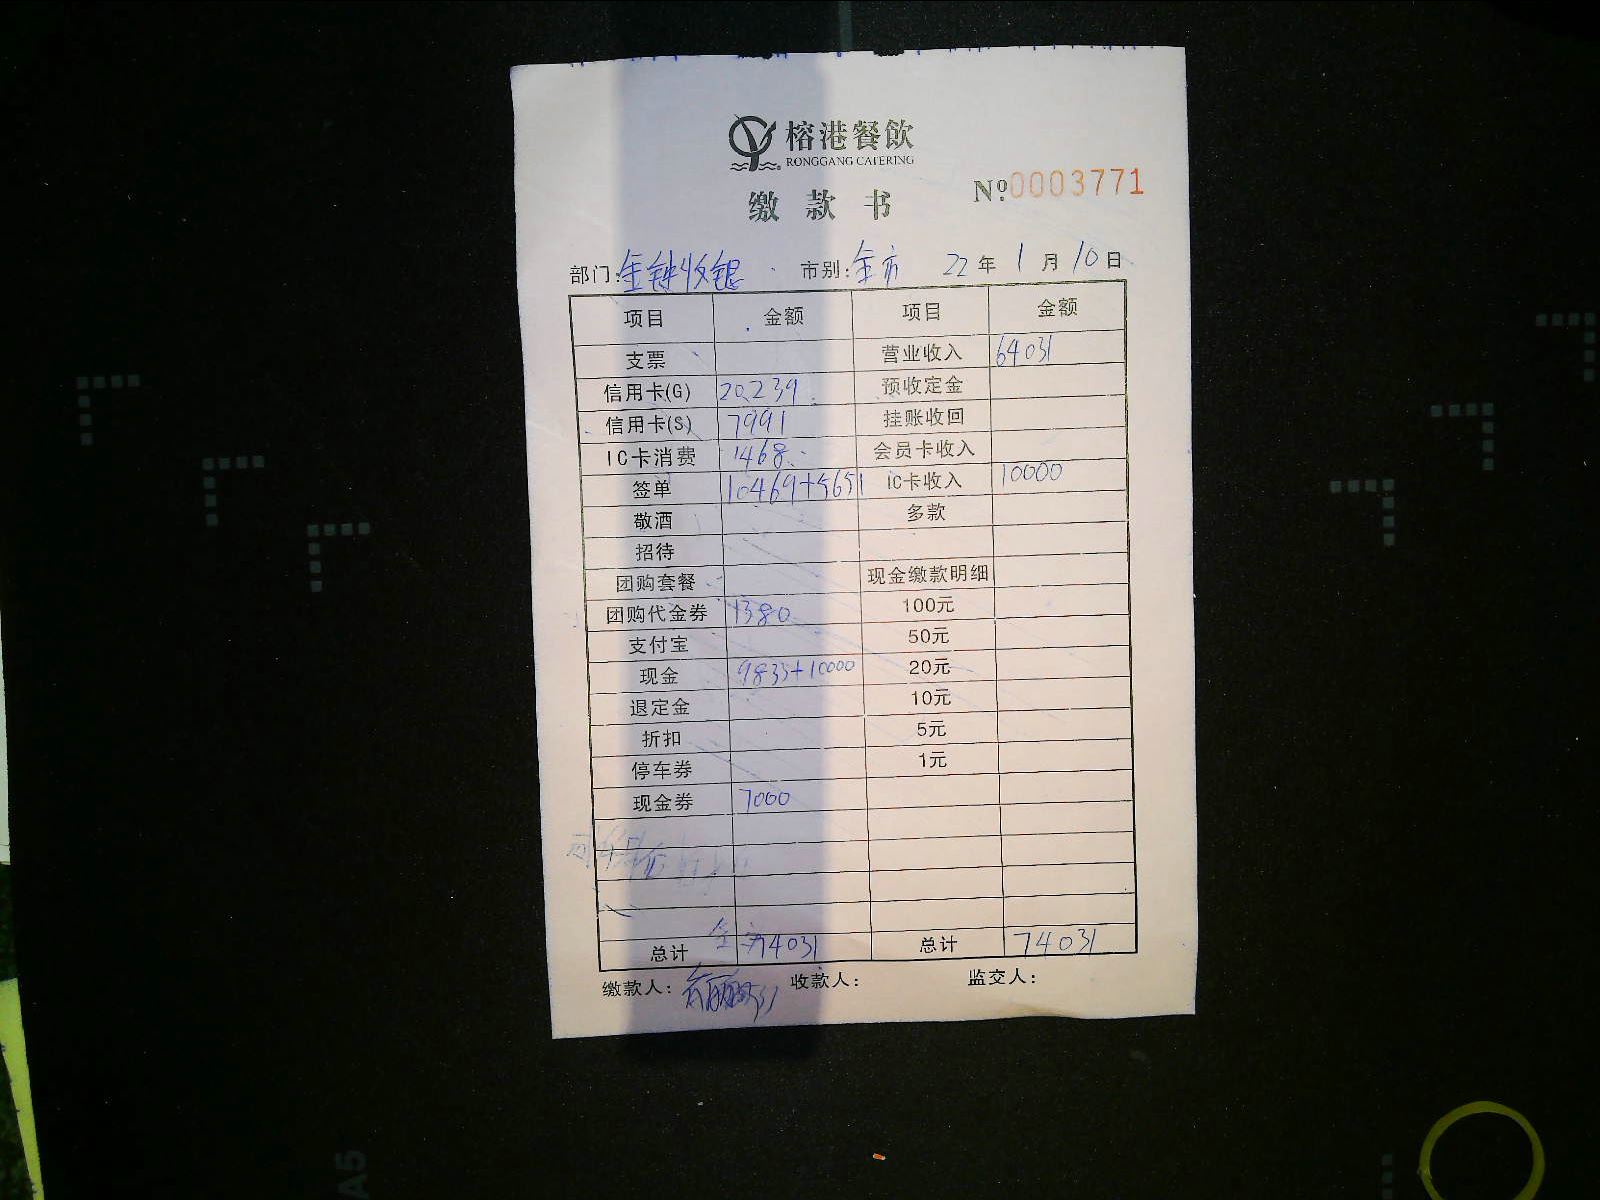 榕港餐飲
RONGGANG CATERING
缴款书
№0003771
部门:金钟收银 市别:全市 22年1月10日
项目 金额 项目 金额
支票 营业收入 64031
信用卡(G) 20239 预收定金
信用卡(S) 7991 挂账收回
IC卡消费 1468 会员卡收入
签单 10469+5651 IC卡收入 10000
敬酒 多款
招待
团购套餐 现金缴款明细
团购代金券 1380 100元
支付宝 50元
现金 9833+10000 20元
退定金 10元
折扣 5元
停车券 1元
现金券 7000
总计 74031 总计 74031
缴款人: 收款人: 监交人:
A5